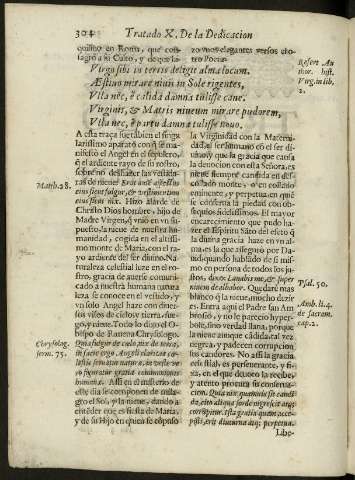 304 Tratado X. De la Dedicacion
quilino en Roma, que con-
sagrò a su Culto, y de que la-
zo vnos elegantes versos cho-
tro Poeta.
Virgo sibi in terris deligit alma locum.
Æstino mirare niuis in Sole rigentes,
Vlla nec, è calida damna tulisse cane.
Virginis, & Matris niueum mirare pudorem,
Vlla nec, è partu damna tulisse nouo.
A esta traça fue tãbien el singu
larissimo aparato cõ que se ma
nifestò el Angel en el sepulcro,
q̃ el ardiente rayo de su rostro,
sobre no deshazer las vestidu-
ras de nieue: Erat autẽ aspectus
eius sicut fulgur, & vestimentum
eius sicut nix. Hizo alarde de
Christo Dios hombre, hijo de
Madre Virgen, q̃ vnió en vn su-
puesto, la nieue de nuestra hu-
manidad, cogida en el altissi-
mo monte de Maria, con el ra-
yo ardiente del ser diuino. Na-
turaleza celestial luze en el ro-
stro, gracia de auerse comuni-
cado a nuestra humana natura
leza se conoce en el vestido, y
vn solo Angel haze con diuer-
sos visos de cielo y tierra, fue-
go, y nieue. Todo lo dijo el O-
bispo de Rauena Chrysologo.
Qua fulgor de cælo, nix de terra,
in facie ergo Angeli claritas cœ-
lestis seruatur naturæ, in veste ve-
rò figuratur gratia communionis
humanæ. Assi en el misterio de
este dia se componen de mila-
gro el Sol, y la nieue, dando a
entẽder que es fiesta de Maria,
y de su Hijo en quien se cõpuso
la Virginidad con la Materni-
dad, al ser humano cõ el ser di-
uino. Y que la gracia que causa
la deuocion con esta Señora, es
nieue siempre candida en des-
collado monte, y en collado
eminente, y perpetua en quien
se conserua la piedad con ob-
sequios fidelissimos. El mayor
encarecimiento que pudo ha-
zer el Espiritu Sãto del efeto q̃
la diuina gracia haze en vn al-
ma, es la que asseguró por Da-
uid, quando hablado de si mis-
mo en persona de todos los ju-
stos, dixo: Lauabis me, & super
niuem dealbabor. Quedarè mas
blanco q̃ la nieue, mucho dizir
es. Entra aqui el Padre san Am
brosio, y no le parecio hyper-
bole, sino verdad llana, porque
nieues aunque cãdida, tal vez
negrea, y padecen corrupcion
sus candores. No assi la gracia
celestial, es perseuerante, y fi-
xa, en el que deuoto la recibe,
y atento procura su conserua-
cion. Quia nix quamuis sit candi-
da, cito aliqua sorde nigrescit atq;
corrumpitur. ista gratia quam acce-
pistis, erit diuturna atq; perpetua.
Libe-
Math. 28.
Chrysolog.
serm. 75.
Refert Au
thor. hist.
Virg. in lib.
2.
Psal. 50.
Amb. li. 4.
de sacram.
cap. 2.